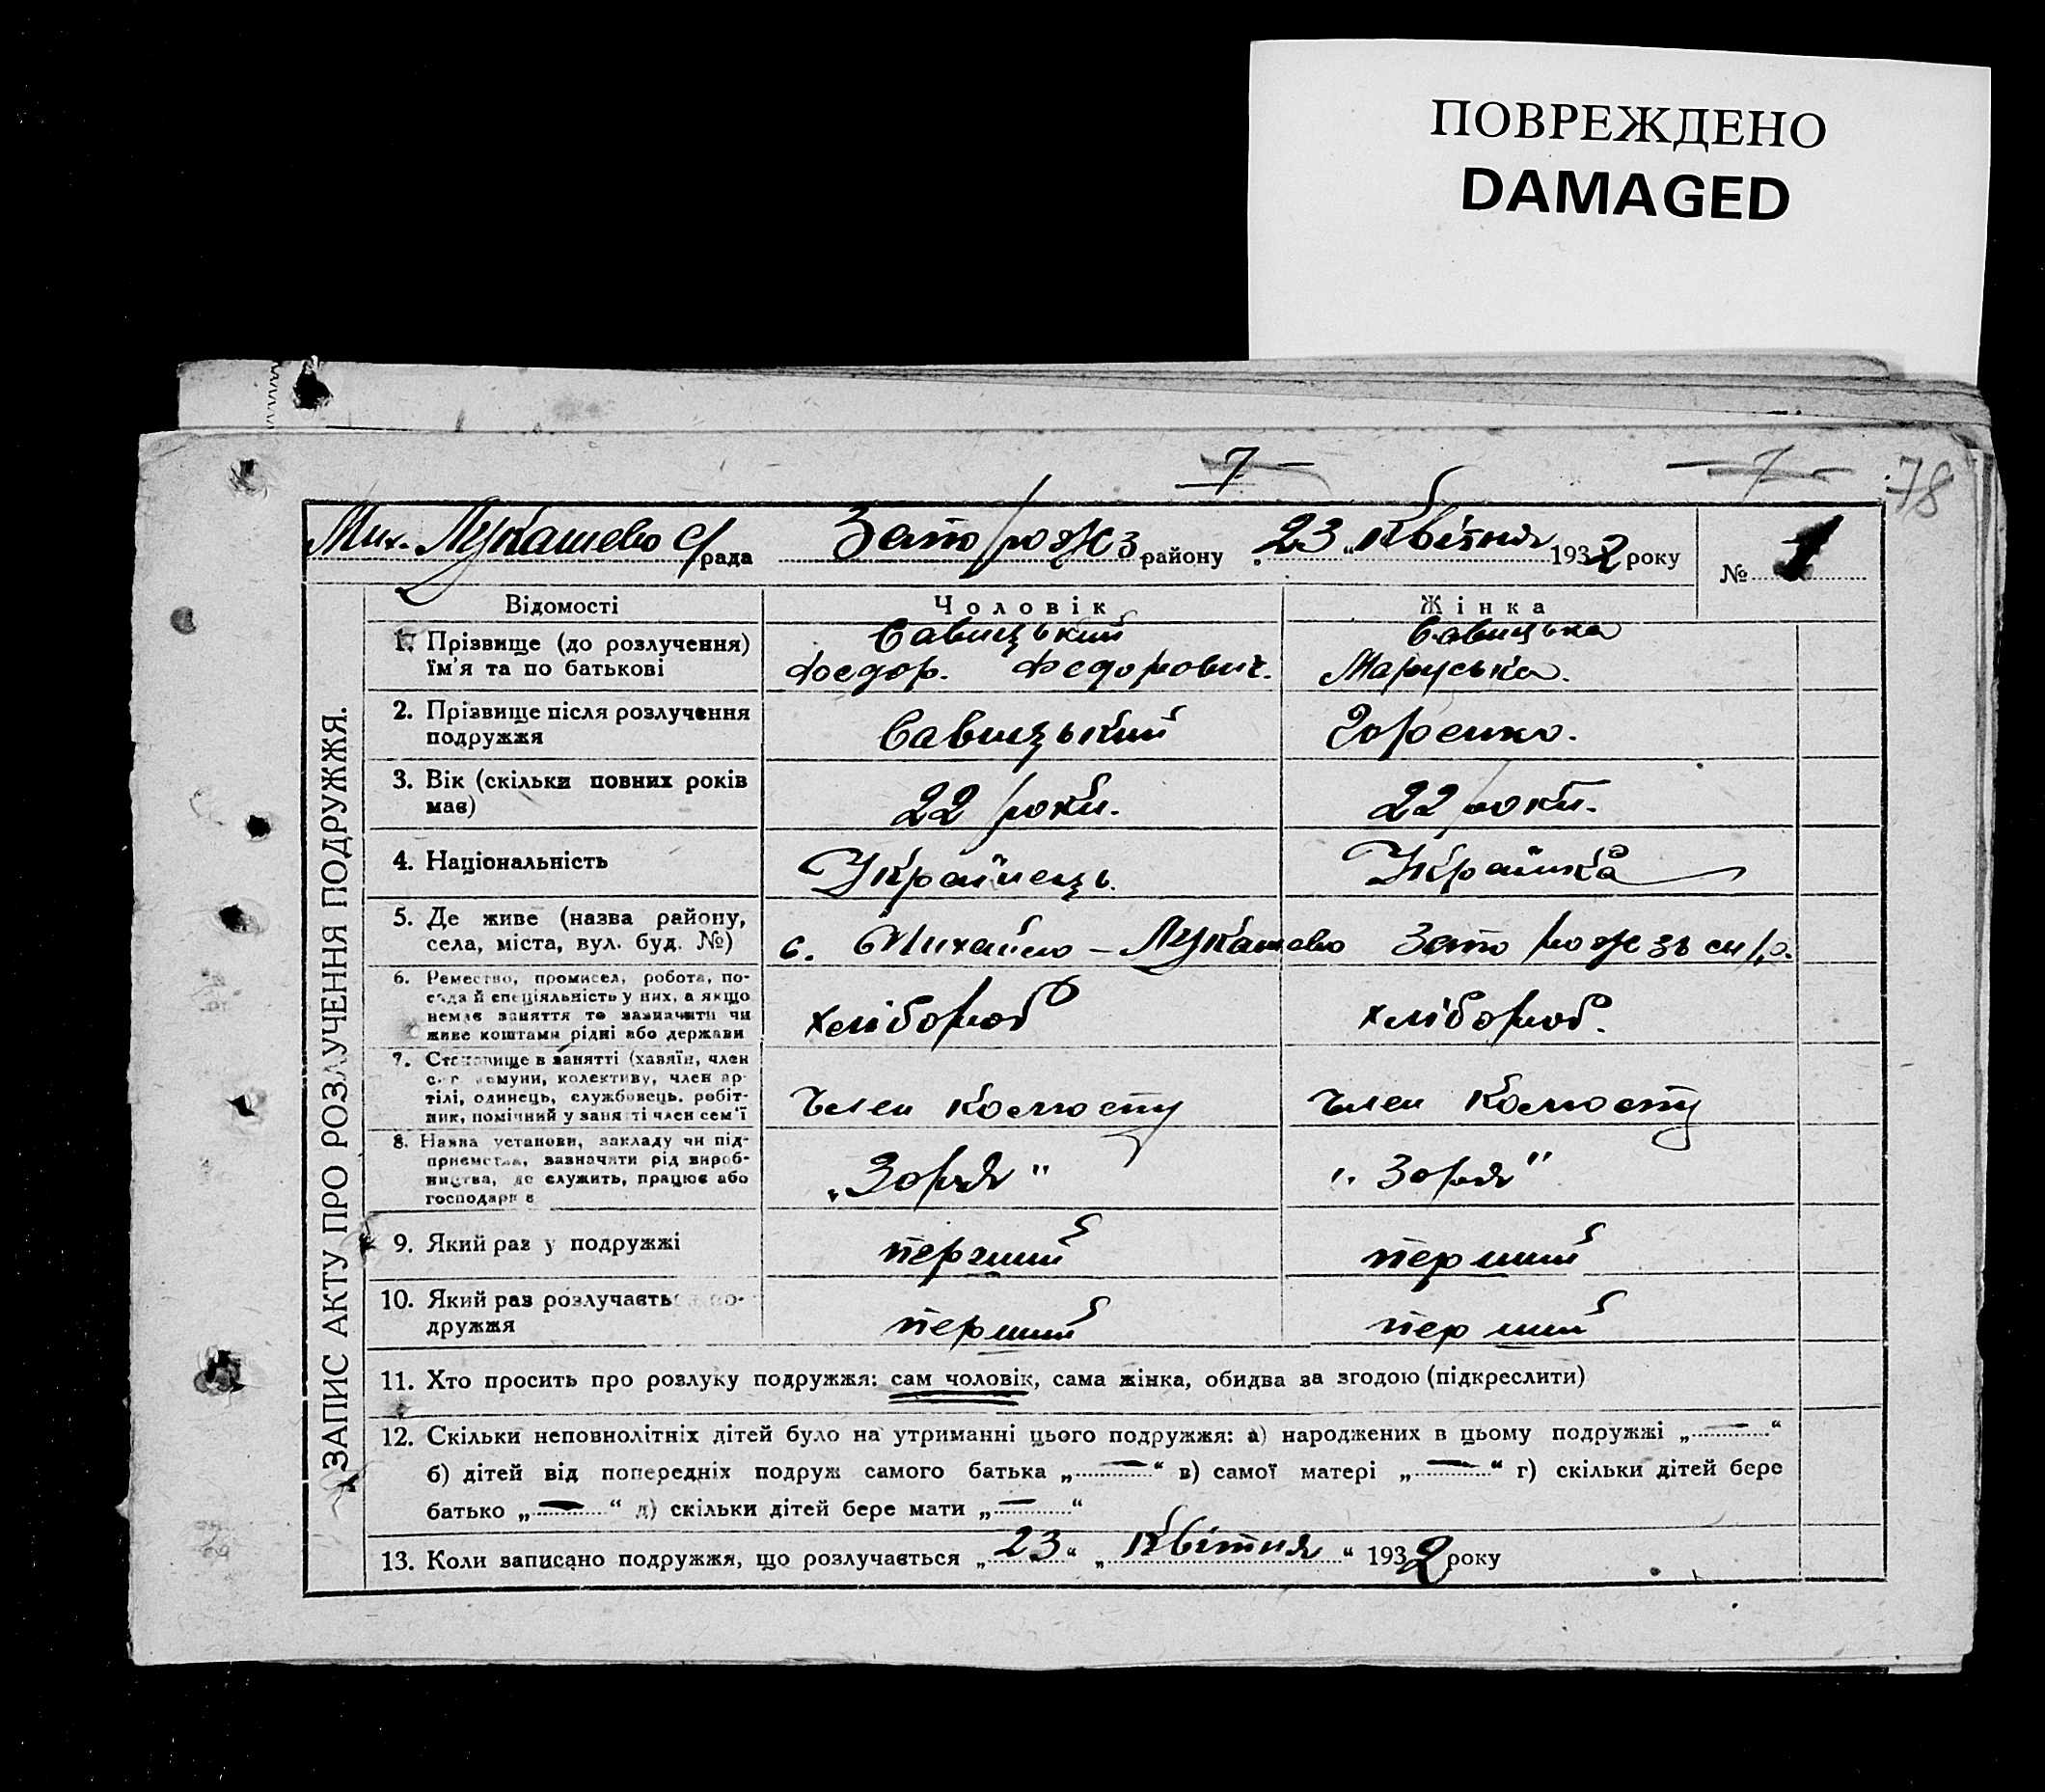 ПОВРЕЖДЕНО
DAMAGED
7
7
78
Мих. Лукашево С/рада Запоріжз району 23 „Квітня 1932 року № 1
ЗАПИС АКТУ ПРО РОЗЛУЧЕННЯ ПОДРУЖЖЯ.
Відомості Чоловік Жінка
1. Прізвище (до розлучення) Савицький Савицька
їм'я та по батькові Федор. Федорович. Маруська.
2. Прізвище після розлучення Савицький
подружжя
3. Вік (скільки повних років 22 роки. 22 роки.
має)
4. Національність Українець. Українка
5. Де живе (назва району,
села, міста, вул. буд. №) с. Михайло – Лукашево
6. Ремество, промисел, робота, по-
сада й спеціяльність у них, а якщо
немає заняття то зазначити чи хлібороб хлібороб.
живе коштами рідні або держави
7. Становище в занятті (хазяїн, член
комуни, колективу, член ар-
тілі, одинець, службовець, робіт- Член Колгоспу Член Колгоспу
ник, помічний у занятті член сем'ї
8. Назва установи, закладу чи під-
приємства, зазначити рід вироб- „Зоря" „Зоря"
ництва, де служить, працює або
господарює
9. Який раз у подружжі перший перший
10. Який раз розлучається по-
дружжя перший перший
11. Хто просить про розлуку подружжя: сам чоловік, сама жінка, обидва за згодою (підкреслити)
12. Скільки неповнолітніх дітей було на утриманні цього подружжя: а) народжених в цьому подружжі „—“
б) дітей від попередніх подруж самого батька „—“ в) самої матері „—“ г) скільки дітей бере
батько „—“ д) скільки дітей бере мати „—“
13. Коли записано подружжя, що розлучається „23“ „Квітня“ 1932 року